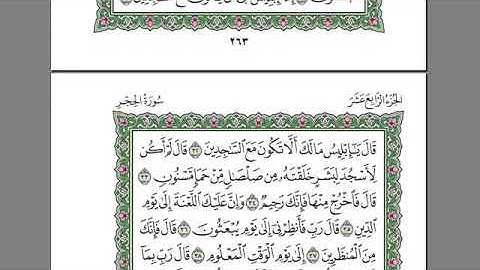 ٢٦٣
سُورَةُ الحِجْرِ
الجُزْءُ الرَّابِعَ عَشَرَ
قَالَ يَٰٓإِبْلِيسُ مَا لَكَ أَلَّا تَكُونَ مَعَ ٱلسَّٰجِدِينَ ٣٢ قَالَ لَمْ أَكُن
لِّأَسْجُدَ لِبَشَرٍ خَلَقْتَهُۥ مِن صَلْصَٰلٍ مِّنْ حَمَإٍ مَّسْنُونٍ ٣٣
قَالَ فَٱخْرُجْ مِنْهَا فَإِنَّكَ رَجِيمٌ ٣٤ وَإِنَّ عَلَيْكَ ٱللَّعْنَةَ إِلَىٰ يَوْمِ
ٱلدِّينِ ٣٥ قَالَ رَبِّ فَأَنظِرْنِىٓ إِلَىٰ يَوْمِ يُبْعَثُونَ ٣٦ قَالَ فَإِنَّكَ
مِنَ ٱلْمُنظَرِينَ ٣٧ إِلَىٰ يَوْمِ ٱلْوَقْتِ ٱلْمَعْلُومِ ٣٨ قَالَ رَبِّ بِمَآ